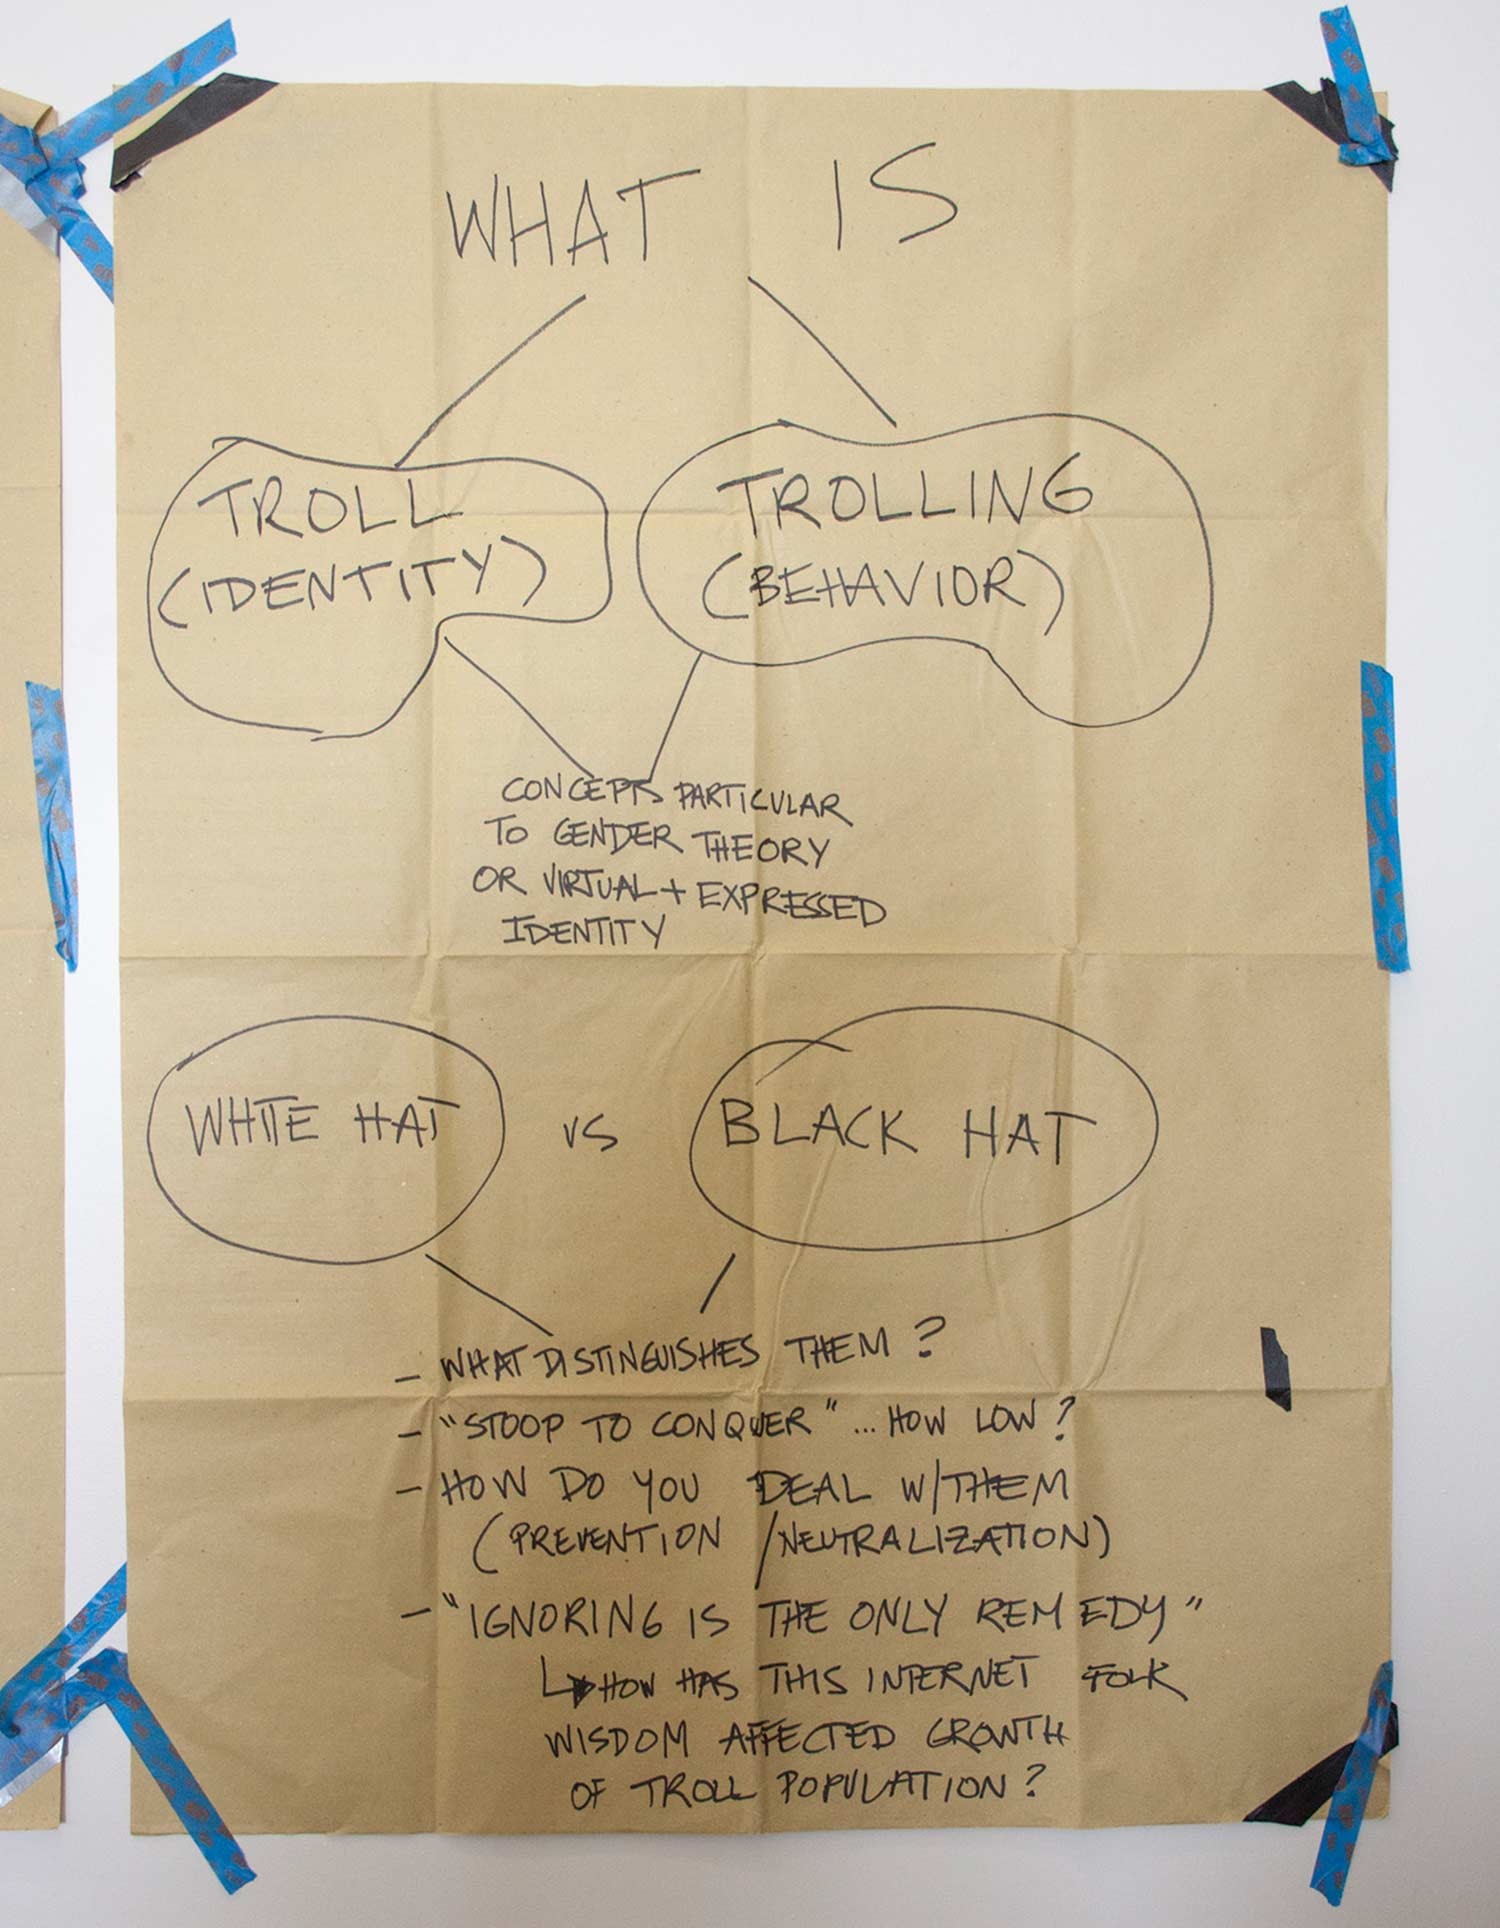 WHAT IS
TROLL
(IDENTITY)
TROLLING
(BEHAVIOR)
CONCEPTS PARTICULAR
TO GENDER THEORY
OR VIRTUAL + EXPRESSED
IDENTITY
WHITE HAT vs BLACK HAT
- WHAT DISTINGUISHES THEM?
- "STOOP TO CONQUER" ... HOW LOW?
- HOW DO YOU DEAL W/THEM
(PREVENTION /NEUTRALIZATION)
- "IGNORING IS THE ONLY REMEDY"
↳ HOW HAS THIS INTERNET FOLK
WISDOM AFFECTED GROWTH
OF TROLL POPULATION?